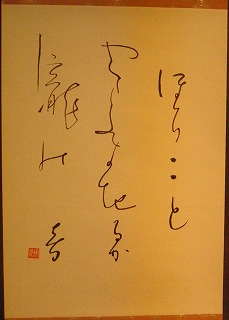 ほろゝゝと
やまふきちるか
瀧の音